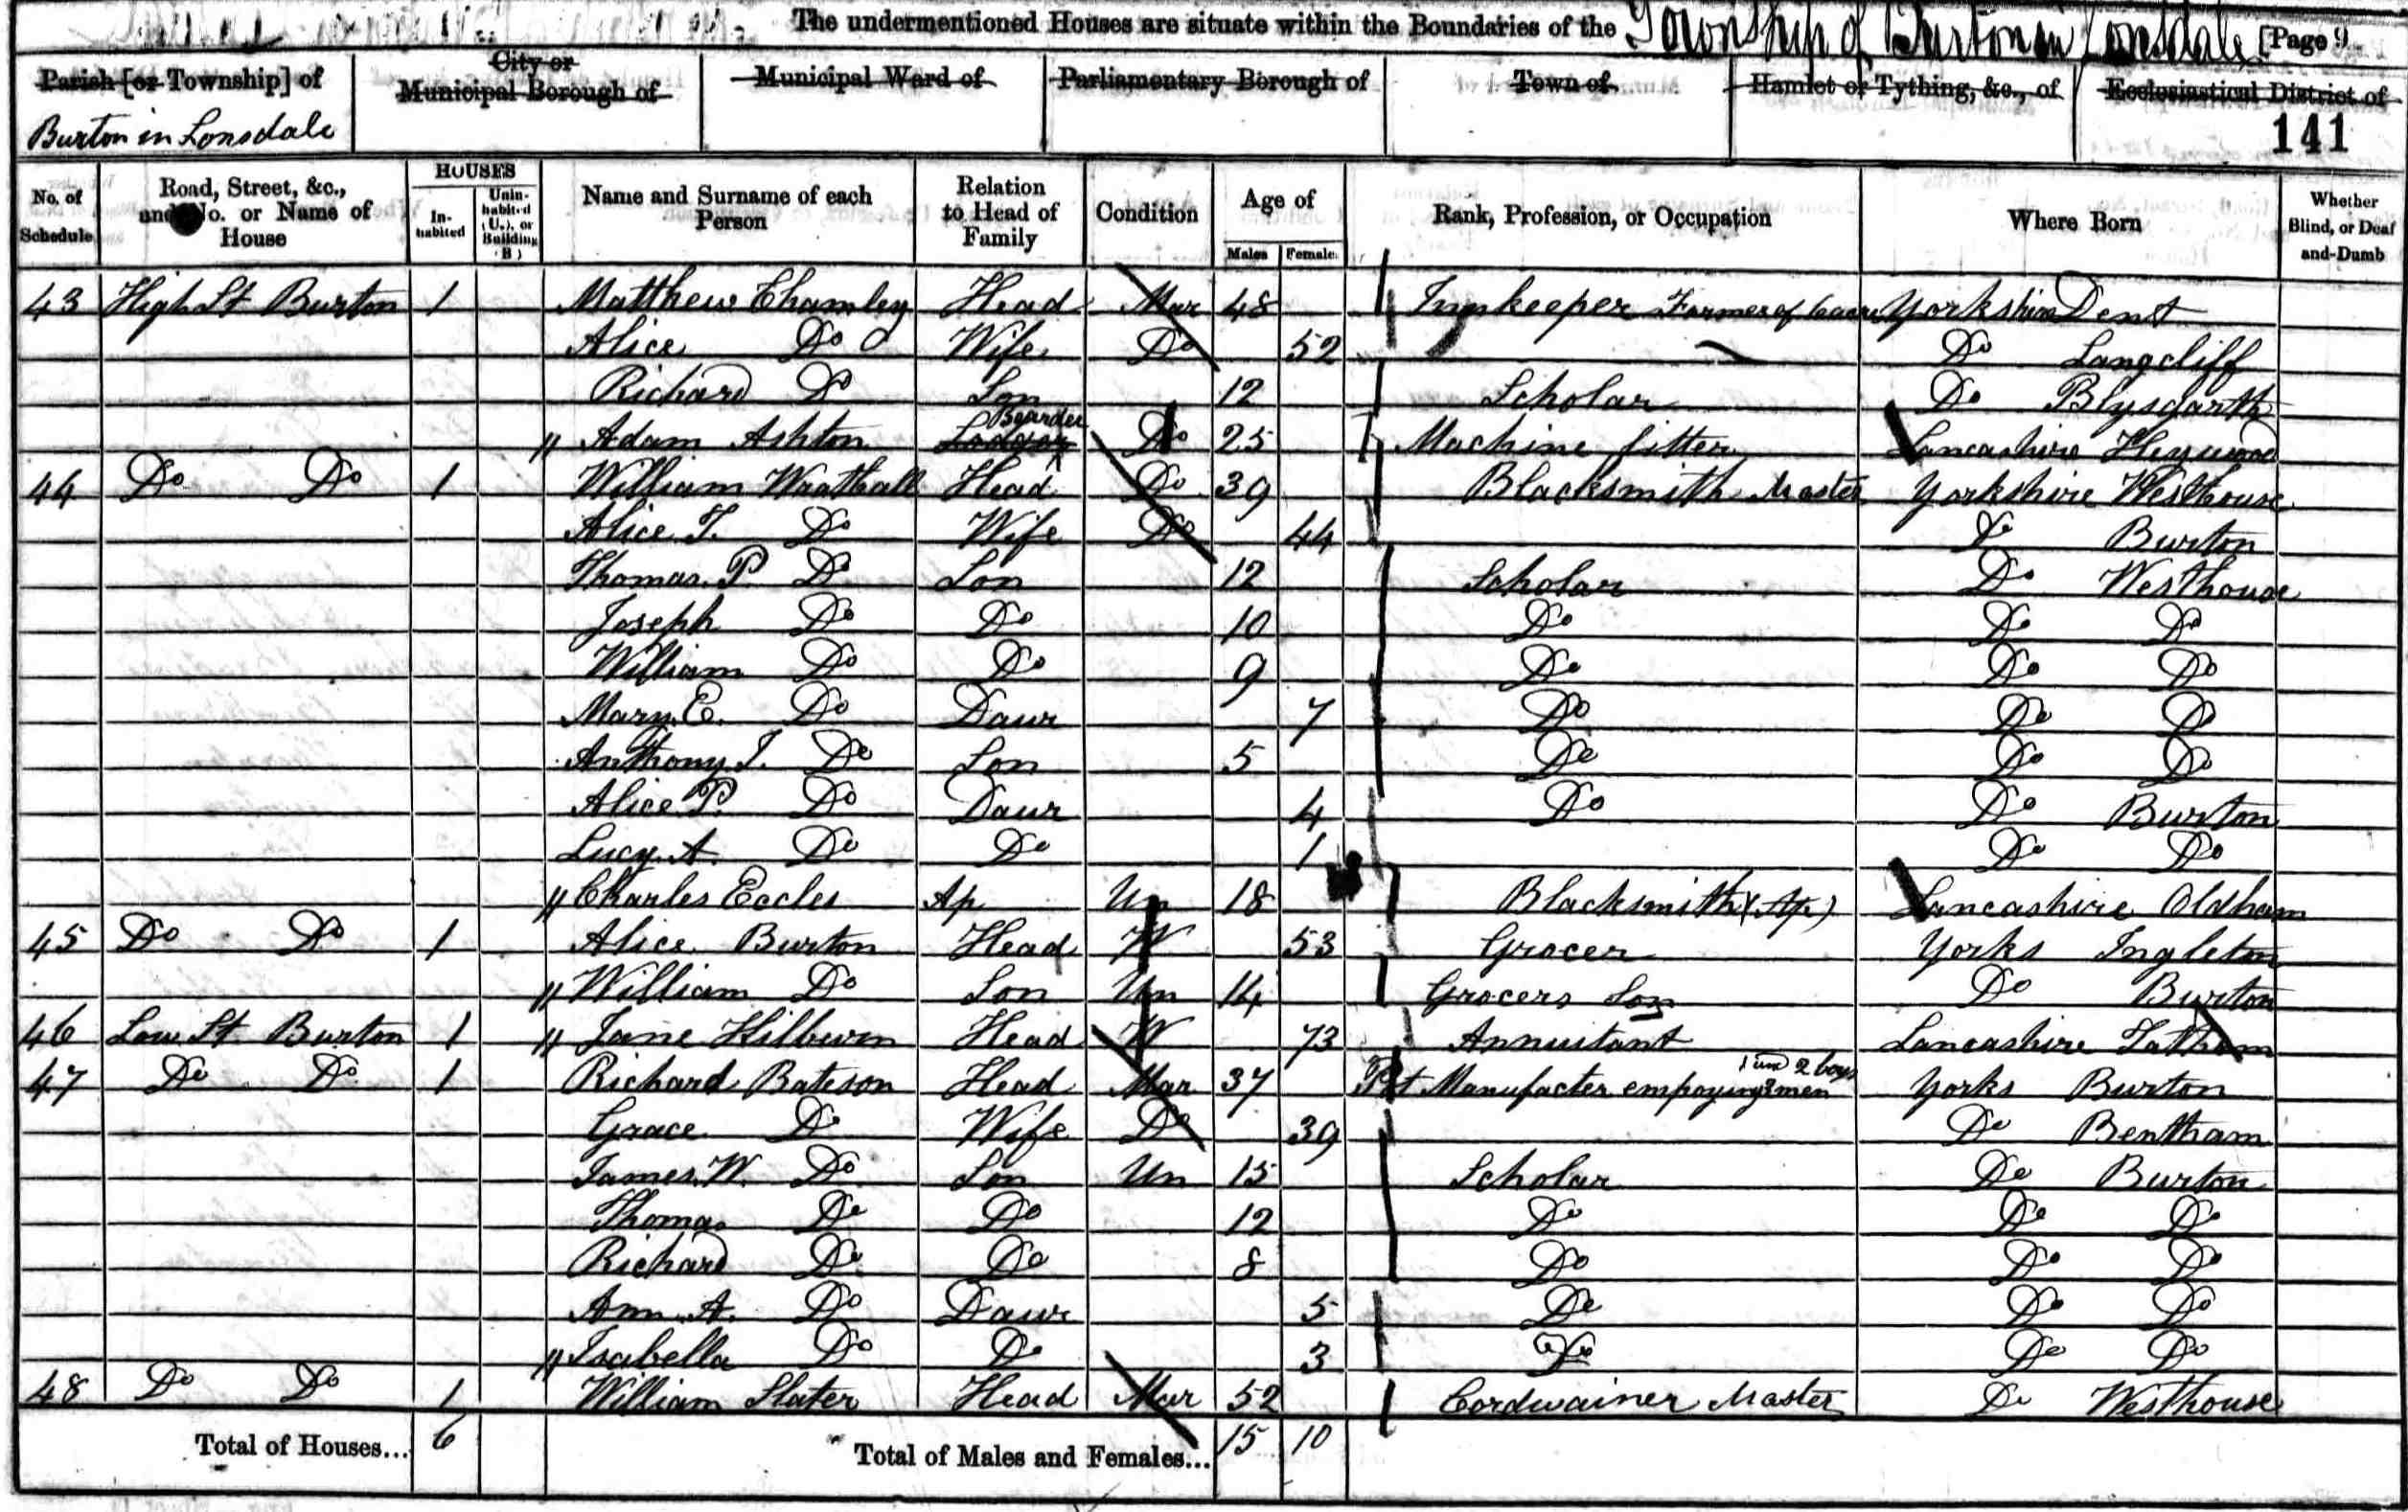 The undermentioned Houses are situate within the Boundaries of the Township of Burton in Lonsdale [Page 9
Parish [or Township] of
City or Municipal Borough of
Municipal Ward of
Parliamentary Borough of
Town of
Hamlet or Tything, &c., of
Ecclesiastical District of
Burton in Lonsdale
141
No. of Schedule
Road, Street, &c., and No. or Name of House
HOUSES
In-habited
Unin-habited (U.), or Building (B)
Name and Surname of each Person
Relation to Head of Family
Condition
Age of
Males
Females
Rank, Profession, or Occupation
Where Born
Whether Blind, or Deaf-and-Dumb
43 High St Burton 1 Matthew Chamley Head Mar 48 Innkeeper Farmer of Yorkshire Dent
Alice Do Wife Do 52 Do Langcliff
Richard Do Son 12 Scholar Do
" Adam Ashton Lodger Boarder Do 25 Machine fitter Lancashire Heywood
44 Do Do 1 William Head Do 39 Blacksmith Master Yorkshire Westhouse
Alice T. Do Wife Do 44 Do Burton
Thomas P. Do Son 12 Scholar Do Westhouse
Joseph Do Do 10 Do Do Do
William Do Do 9 Do Do Do
Mary E. Do Daur 7 Do Do Do
Anthony T. Do Son 5 Do Do Do
Alice P. Do Daur 4 Do Do Burton
Lucy A. Do Do 1 Do Do
" Charles Eccles Ap Un 18 Blacksmith (Ap) Lancashire Oldham
45 Do Do 1 Alice Burton Head W 53 Grocer Yorks Ingleton
" William Do Son Un 14 Grocers Son Do Burton
46 Low St Burton 1 " Jane Head W 73 Annuitant Lancashire Tatham
47 Do Do 1 Richard Bateson Head Mar 37 Pot Manufacter empoying 3 men 2 boys Yorks Burton
Grace Do Wife Do 39 Do Bentham
James W. Do Son Un 15 Scholar Do Burton
Thomas Do Do 12 Do Do Do
Richard Do Do 8 Do Do Do
Ann A. Do Daur 5 Do Do Do
" Isabella Do Do 3 Do Do Do
48 Do Do 1 William Slater Head Mar 52 Cordwainer Master Do Westhouse
Total of Houses... 6 Total of Males and Females... 15 10